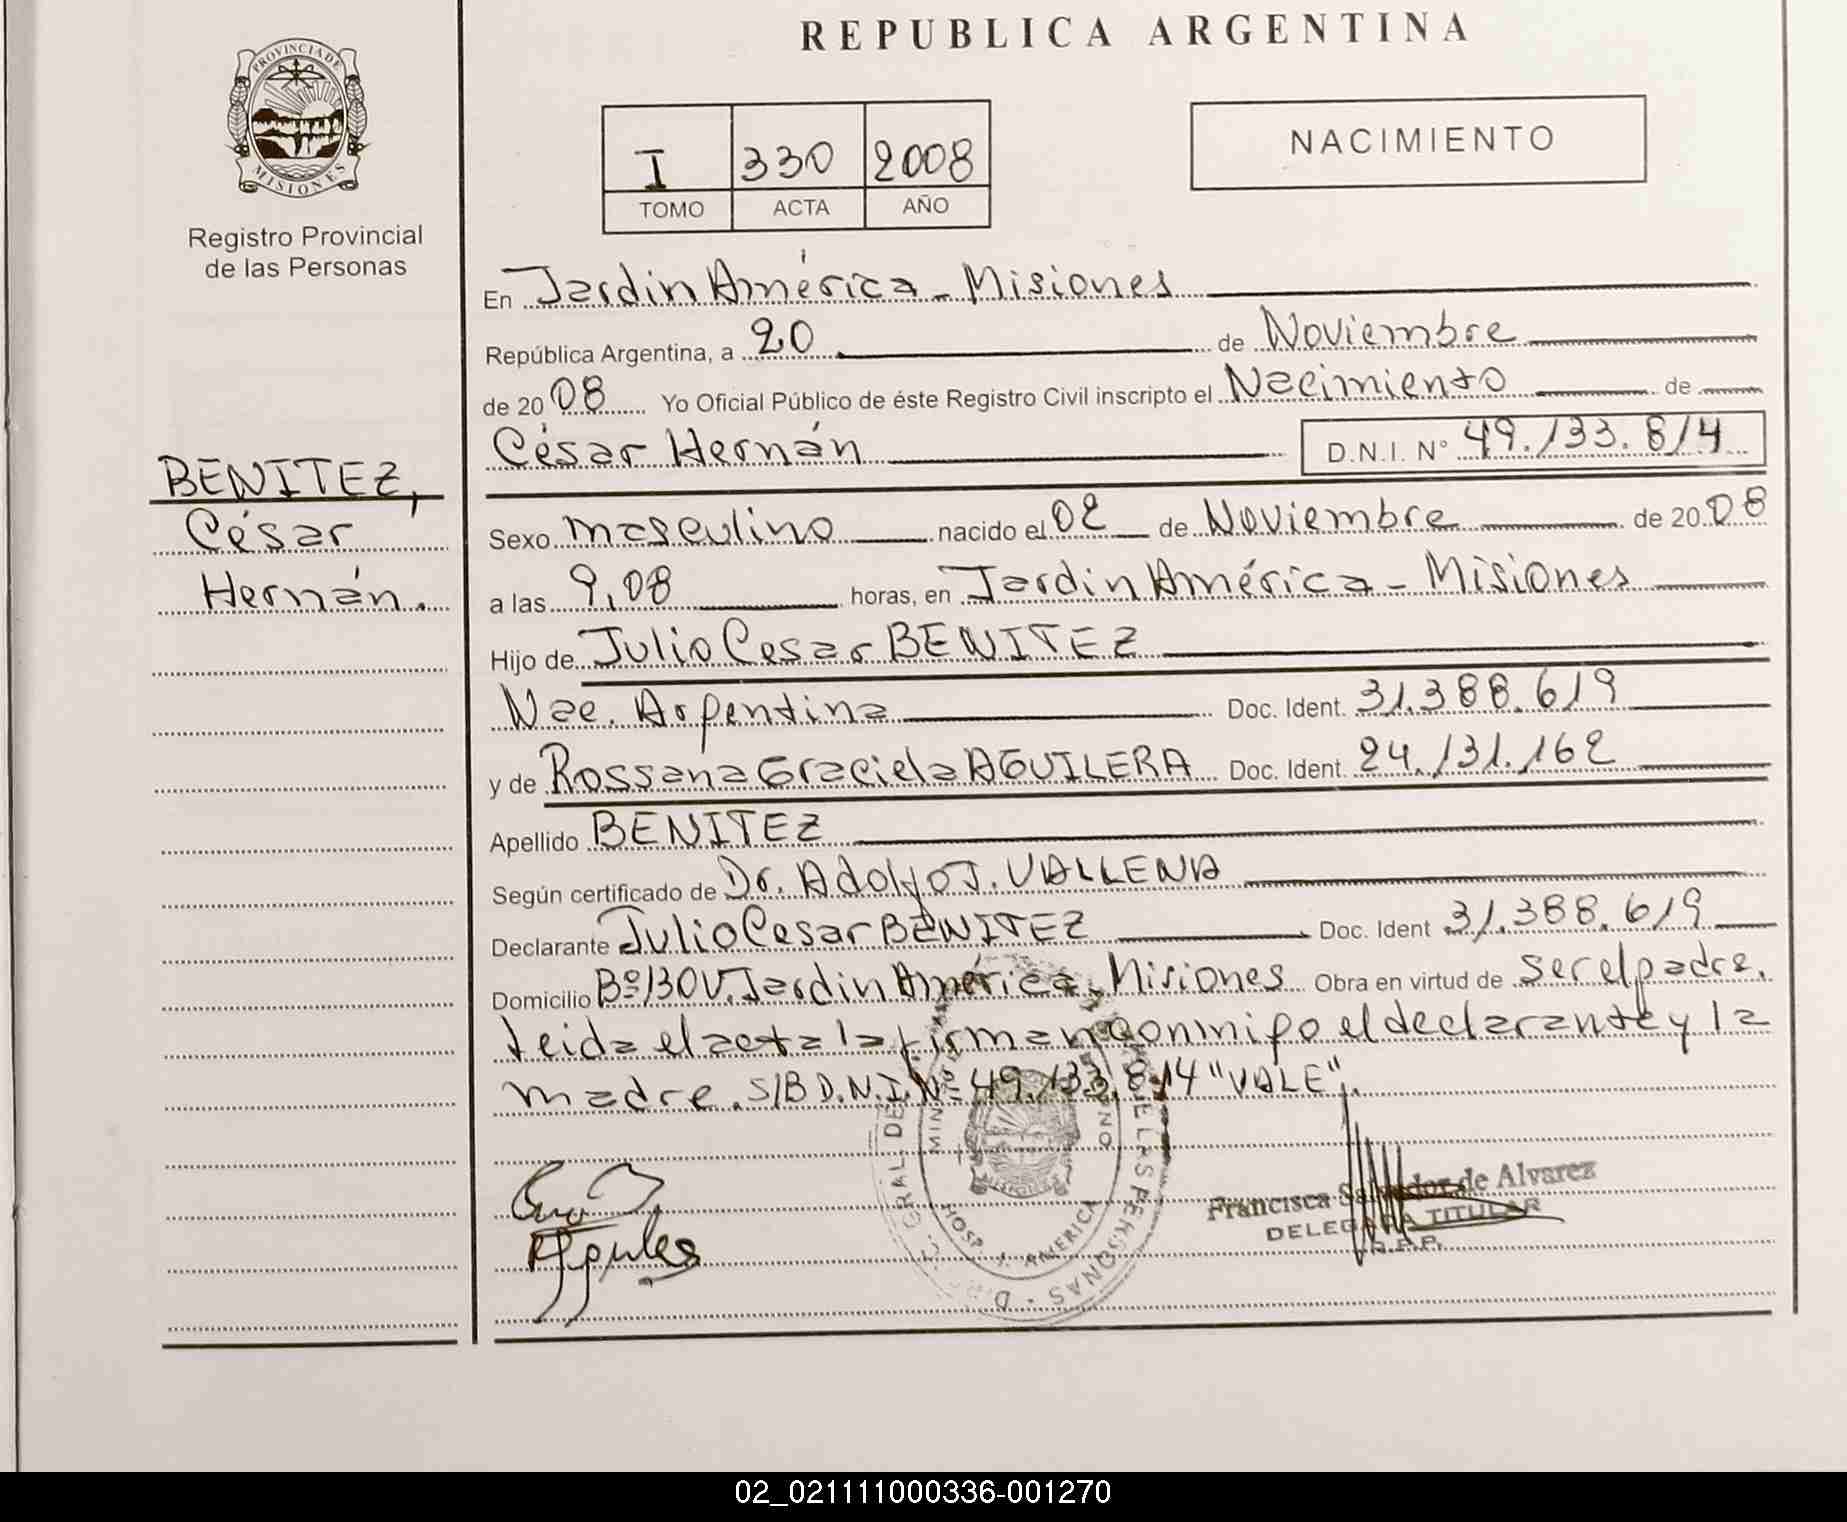 REPUBLICA ARGENTINA
PROVINCIA DE
MISIONES
Registro Provincial
de las Personas
I 330 2008
TOMO ACTA AÑO
NACIMIENTO
En Jardin América - Misiones
República Argentina, a 20 de Noviembre
de 2008 Yo Oficial Público de éste Registro Civil inscripto el Nacimiento de
César Hernán D.N.I. N° 49.133.814
BENITEZ,
César
Hernán.
Sexo masculino nacido el 02 de Noviembre de 2008
a las 9,08 horas, en Jardin América - Misiones
Hijo de Julio Cesar BENITEZ
Nac. Argentina Doc. Ident. 31.388.619
y de Rossana Graciela AGUILERA Doc. Ident. 24.131.162
Apellido BENITEZ
Según certificado de Dr. Adolfo J. VALLENA
Declarante Julio Cesar BENITEZ Doc. Ident 31.388.619
Domicilio Bº 130 V. Jardin América - Misiones Obra en virtud de ser el padre.
Leida el acta la firman conmigo el declarante y la
madre. S/B D.N.I. Nº 49.133.814 "VALE".
HOSP. J. AMERICA
PERSONAS
Francisca Salvador de Alvarez
DELEGADA TITULAR
R.P.P.
02_021111000336-001270